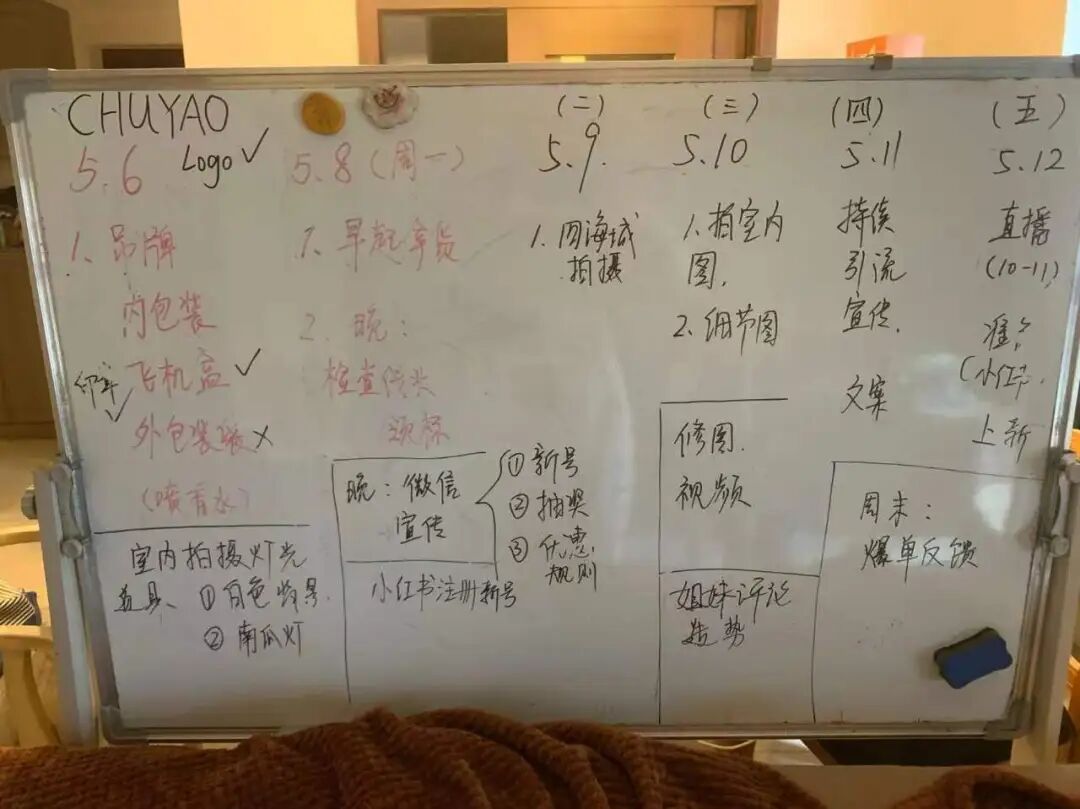 CHUYAO
5.6 Logo ✓
1、吊牌
内包装
飞机盒 ✓
✓
外包装袋 ×
(喷香水)
室内拍摄灯光
道具、① 白色背景
② 南瓜灯
5.8 (周一)
1. 早起拿货
2. 晚:
检查线头
领标
晚:微信
宣传
① 新号
② 抽奖
③ 优惠
规则
小红书注册新号
(二)
5.9.
1. 四海城
拍摄
(三)
5.10
1. 拍室内
图.
2. 细节图
修图.
视频
姐妹评论
走势
(四)
5.11
持续
引流
宣传.
文案
(五)
5.12
直播
(10-11)
准备
(小红书.
上新
周末:
爆单反馈